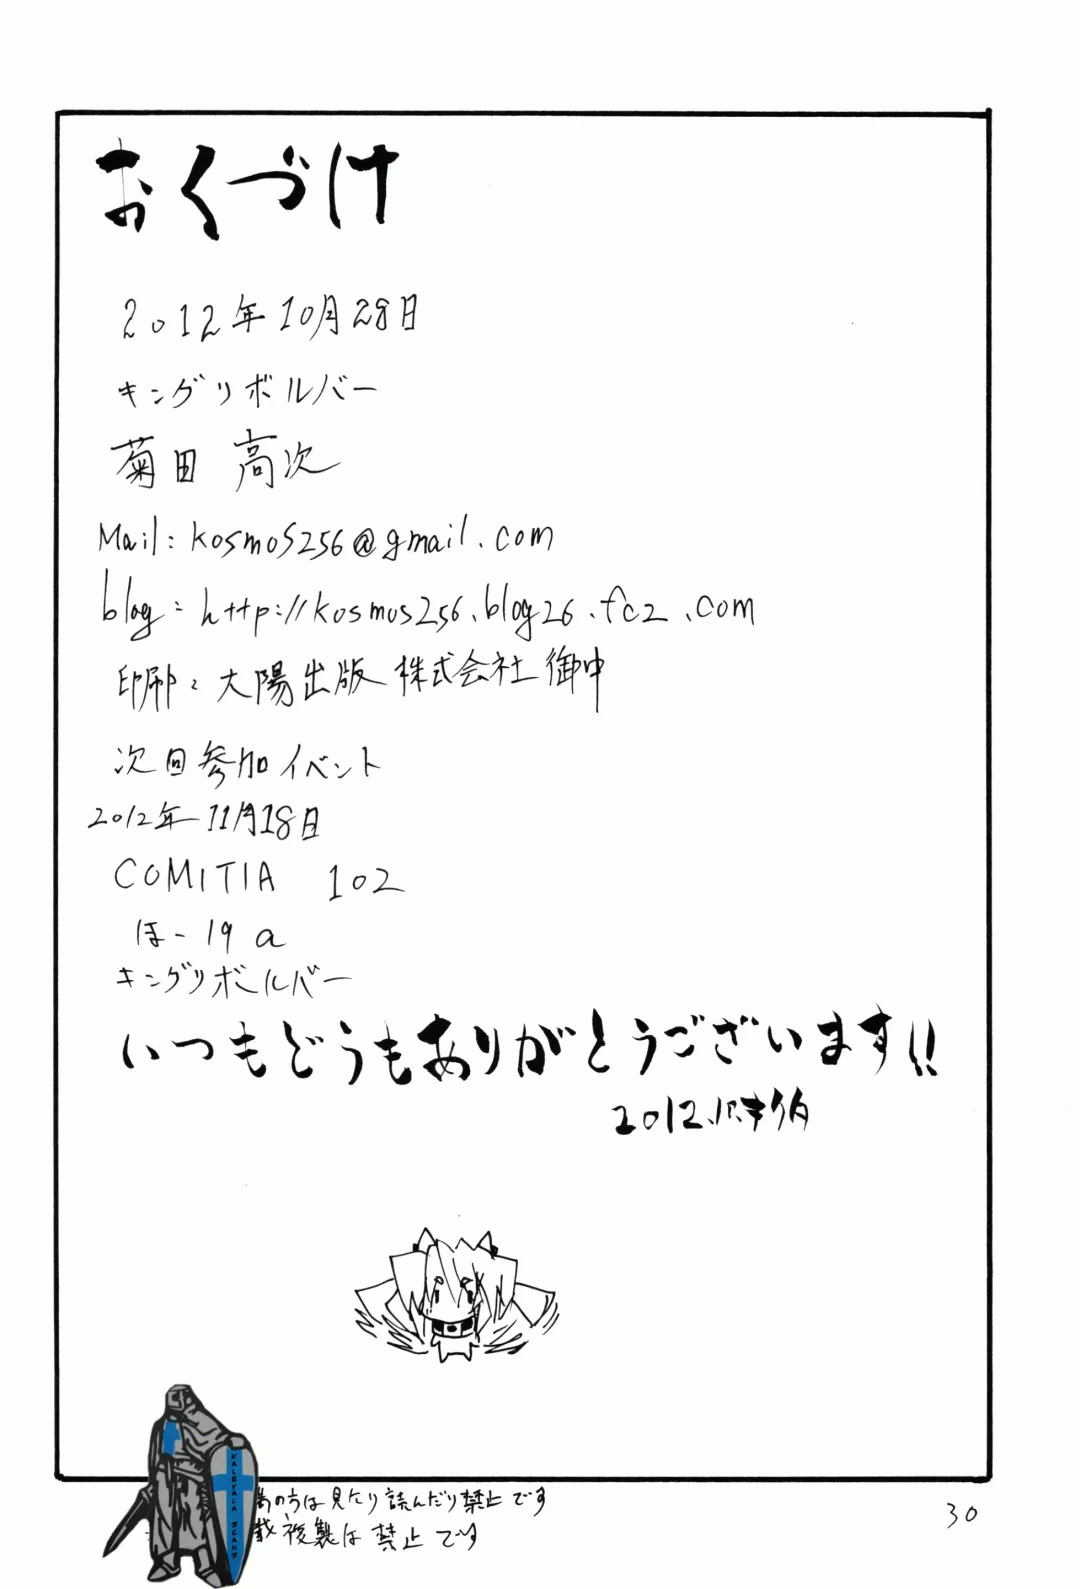 おくづけ
2012年10月28日
キングリボルバー
菊田 高次
Mail: kosmos256@gmail.com
blog: http://kosmos256.blog26.fc2.com
印刷: 大陽出版 株式会社 御中
次回参加イベント
2012年11月18日
COMITIA 102
ほ-19a
キングリボルバー
いつもどうもありがとうございます!!
2012.
の方は見たり読んだり禁止です
載複製は禁止です
30
KALEVALA SCANS